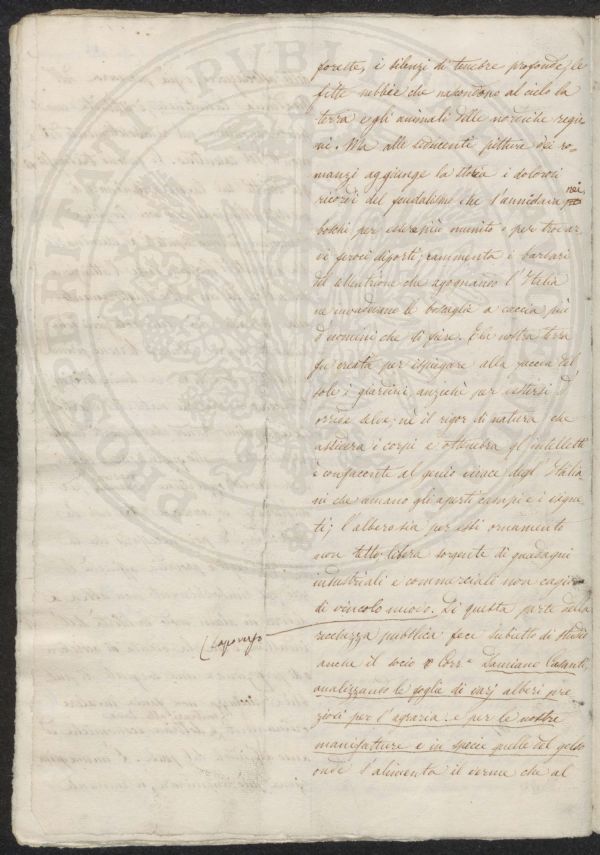 foreste, i silenzi di tenebre profonde, le
fitte nebbie che nascondono al cielo la
terra e gli animali delle nordiche regio
ni. Ma alle sedicenti pitture dei ro-
manzi aggiunge la storia i dolorosi
ricordi del feudalismo che s'annidava nei
boschi per essere più munito o per trovar
vi feroci diporti; rammenta i barbari
del settentrione che agognando l'Italia
ne invadevano le boscaglie a caccia più
d'uomini che di fiere. E la nostra terra
fu creata per ispiegare alla faccia del
sole i giardini, anziché per vestirsi d'
orride selve; nè il rigor di natura che
assidera i corpi e ottenebra gl'intelletti
è confacente al genio vivace degl'Italia
ni che amano gli aperti campi e i vigne
ti; l'albero sia per essi ornamento
non tetto; libera sorgente di guadagni
industriali e commerciali non cagione
di vincolo nuovo. Di questa parte della
Capoverso
ricchezza pubblica fece subietto di studi
anche il socio Corr.e Damiano Casanti,
analizzando le foglie di varj alberi pre
ziosi per l'agraria e per le nostre
manifatture e in specie quelle del gelso
onde s'alimenta il verme che al
PROSPERITATI PUBLICAE